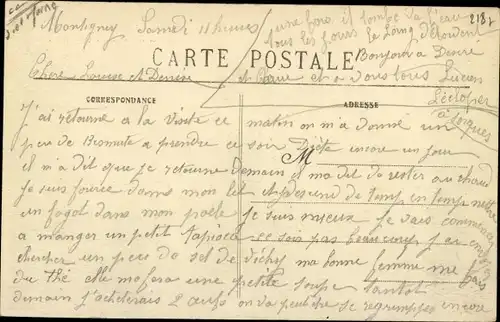 Montigny Samedi 11 heures
une fois, il tombe de l'eau
tous les jours le Loing déborde
Bonjour à Desiré
2187
CARTE POSTALE
Chère Louise et Denise
et à vous tous Lucien
CORRESPONDANCE
ADRESSE
L'éclopé
à Sorques
J'ai retourné a la visite ce matin on m'a donné un
peu de Bismute a prendre ce soir Diète encore un jour
M
il m'a dit que je retourne Demain et m'a dit de rester au chaud
je suis fourré dans mon lit et je descend de temp en temp mettre
un fagot dans mon poële je suis mieux je vais commencer
a manger un petit tapioca ce soir pas beaucoup j'ai envoyé
chercher un peu de sel de Vichy ma bonne femme me fais
du thé elle me fera une petite soupe tantôt
demain j'acheterais 2 œufs on va peut être se regrimper encore